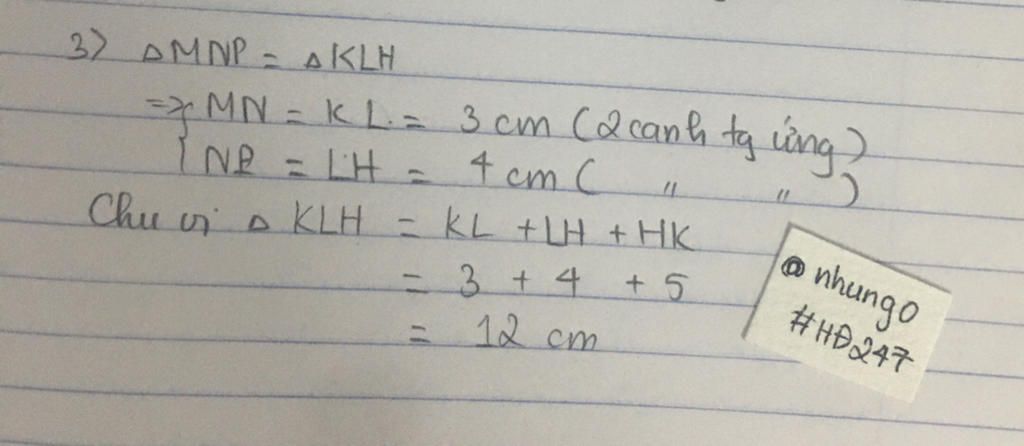 3) ΔMNP = ΔKLH
=> { MN = KL = 3 cm (2 canh tg ứng)
NP = LH = 4 cm ( " " )
Chu vi Δ KLH = KL + LH + HK
= 3 + 4 + 5
= 12 cm
@nhungo
#HĐ247